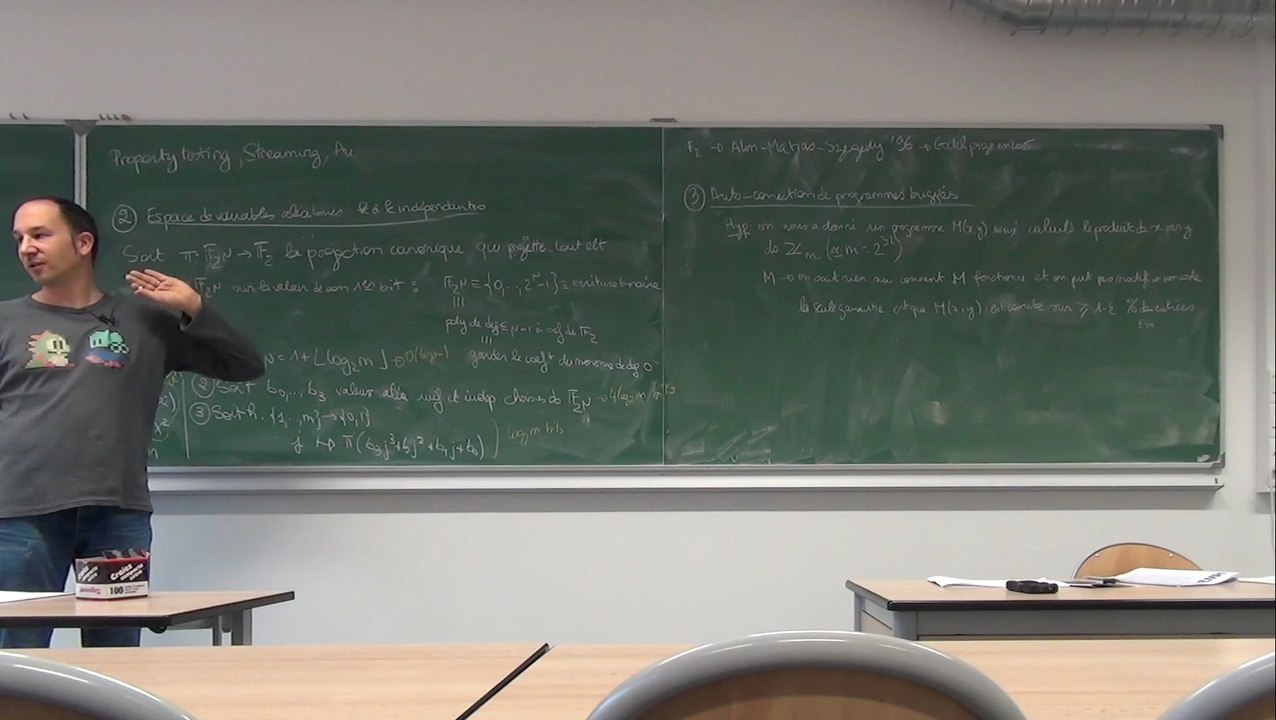 Property testing, Streaming, Au
② Espace de variables aléatoires 4 à 4 indépendantes
Soit π: F₂N → F₂ la projection canonique qui projette tout elt
F₂N sur la valeur de son 1er bit : F₂N ≡ {0,..,2^N-1} ≡ écriture binaire
poly de dg ≤ N-1 à coef ds F₂
N = 1 + ⌊log₂ m⌋ → O(log m) garder le coeft du monome de deg 0
② Soit b₀,.., b₃ valeurs aléa unif et indep choisies ds F₂N → 4 log₂ m bits
③ Soit h: {1,..,m} → {0,1}
j ↦ π(b₃j³+b₂j²+b₁j+b₀) log m bits
F₂ → Alon-Matias-Szegedy '96 → Gödel prize
③ Auto-correction de programmes buggés
Hyp on nous a donné un programme M(x,y) qui calcule le produit de x par y
ds Z_m (m = 2^32)
M → on sait rien sur comment M fonctionne et on peut pas modifier son code
la seule garantie est que M(x,y) est correcte sur ≥ 1-ε % des entrées
100